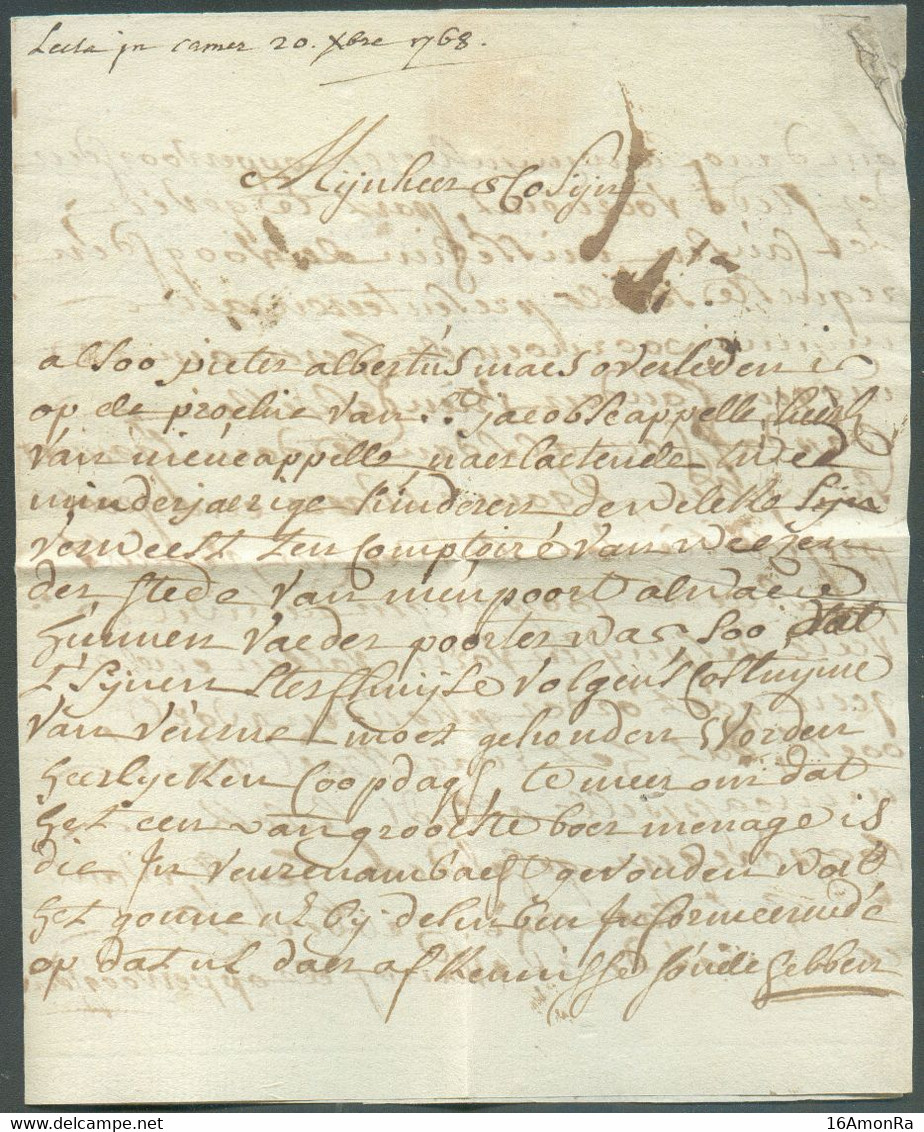 Lecta jn camer 20. Xbre 1768.
Mijnheer Cosijn
alsoo pieter albertus maes overleden is
op de prochie van St. Jacobscappelle, heerl
van nieucappelle naerlaetende twee
minderjaerige kinderen dewelcke sijn
verweest ten Comptoire van weesen
der stede van nieupoort alwaer
hunnen vaeder poorter was soo dat
t'sijnen sterfhuijse volgens Costuyme
van veurne moet gehouden worden
heerlycken Coopdagh, te meer om dat
het een van grootste boer menage is
die jn veurenambacht gevonden wort
het gonne ul by desen ben jnformeerende
op dat ul daer af kennisse soude hebben
16AmonRa